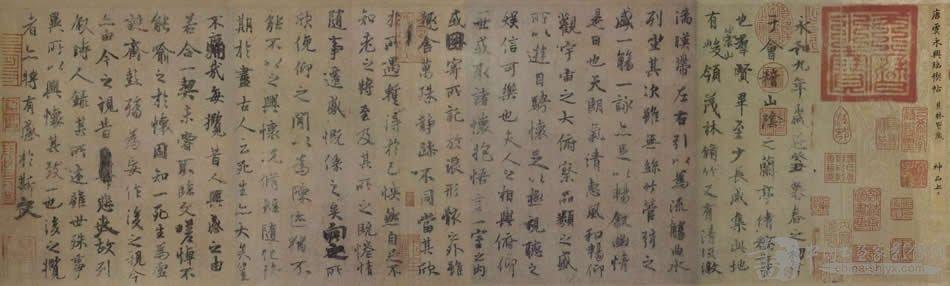 唐虞永興臨禊帖
永和九年歲在癸丑暮春之初會
于會稽山陰之蘭亭脩稧事
也群賢畢至少長咸集此地
有崇山峻領茂林脩竹又有清流激
湍暎帶左右引以為流觴曲水
列坐其次雖無絲竹管弦之
盛一觴一詠亦足以暢敘幽情
是日也天朗氣清惠風和暢仰
觀宇宙之大俯察品類之盛
所以遊目騁懷足以極視聽之
娛信可樂也夫人之相與俯仰
一世或取諸懷抱悟言一室之內
或因寄所託放浪形骸之外雖
趣舍萬殊靜躁不同當其欣
於所遇蹔得於己怏然自足不
知老之將至及其所之既惓情
隨事遷感慨係之矣向之所
欣俛仰之閒以為陳迹猶不
能不以之興懷況脩短隨化終
期於盡古人云死生亦大矣豈
不痛哉每攬昔人興感之由
若合一契未嘗不臨文嗟悼不
能喻之於懷固知一死生為虛
誕齊彭殤為妄作後之視今
亦由今之視昔悲夫故列
敘時人錄其所述雖世殊事
異所以興懷其致一也後之攬
者亦將有感於斯文
china-shjyx.com